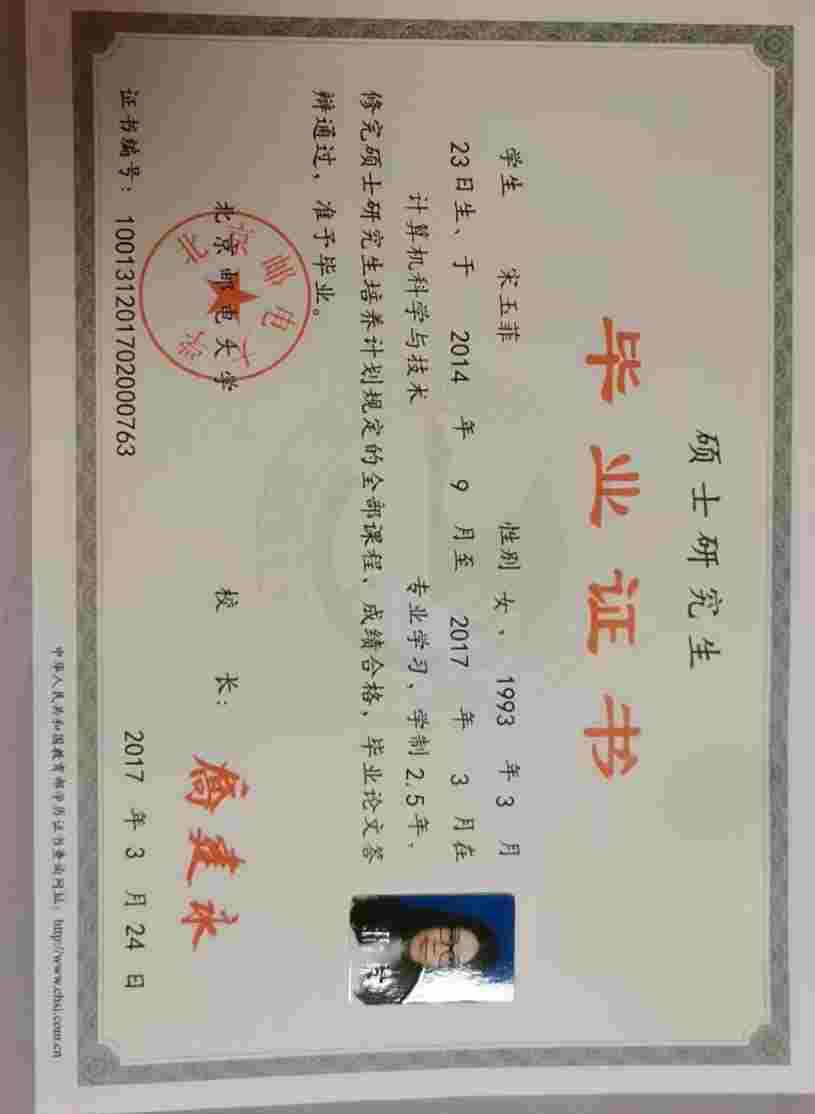 硕士研究生
毕业证书
学生 宋玉菲 性别 女、 1993 年 3 月
23日生、于 2014 年 9 月至 2017 年 3 月在
计算机科学与技术 专业学习,学制 2.5 年、
修完硕士研究生培养计划规定的全部课程、成绩合格,毕业论文答
辩通过,准予毕业。
北京邮电大学 校 长: 乔建永
北京邮电大学
证书编号: 100131201702000763 2017 年 3 月 24 日
中华人民共和国教育部学历证书查询网址: http://www.chsi.com.cn